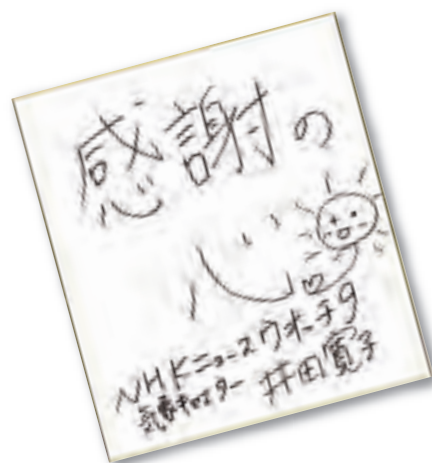 感謝の
心
NHKニュースウオッチ9
気象キャスター 井田寛子